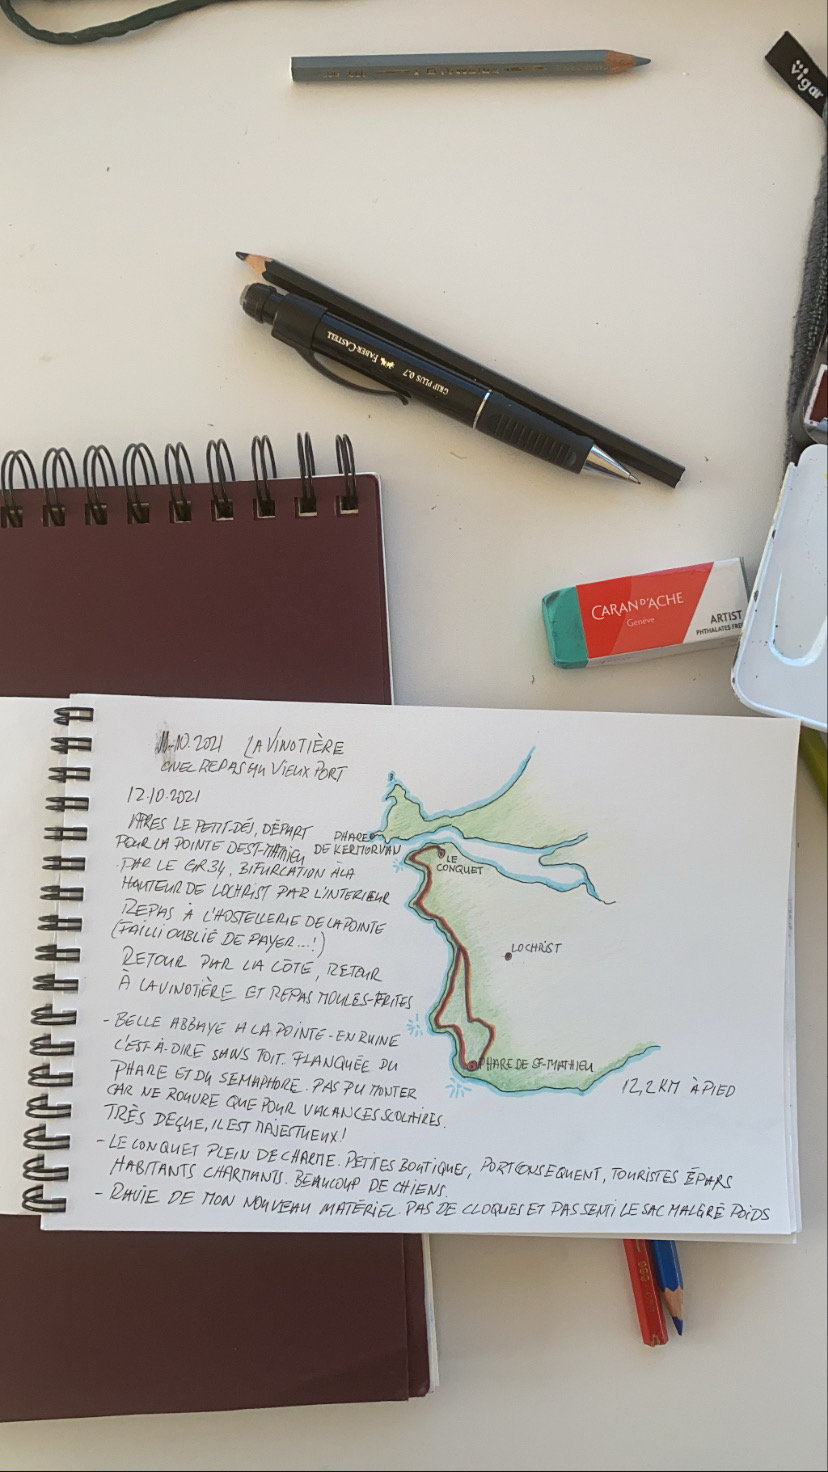 vigar
FABER-CASTELL
GRIP PLUS 0.7
CARAN D'ACHE
Genève
ARTIST
PHTHALATES FREE
11.10.2021 LA VINOTIÈRE
REPAS AU VIEUX PORT
12.10.2021
APRÈS LE PETIT-DÉJ, DÉPART
POUR LA POINTE DE ST-MATHIEU
PAR LE GR34, BIFURCATION À LA
HAUTEUR DE LOCHRIST PAR L'INTERIEUR
REPAS À L'HOSTELLERIE DE LA POINTE
(FAILLI OUBLIÉ DE PAYER...!)
RETOUR PAR LA CÔTE, RETOUR
À LA VINOTIÈRE ET REPAS MOULES-FRITES
- BELLE ABBAYE A LA POINTE - EN RUINE
C'EST-À-DIRE SANS TOIT. FLANQUÉE DU
PHARE ET DU SEMAPHORE. PAS PU MONTER
CAR NE ROUVRE QUE POUR VACANCES SCOLAIRES.
TRÈS DEÇUE, IL EST MAJESTUEUX!
- LE CONQUET PLEIN DE CHARME. PETITES BOUTIQUES, PORT CONSEQUENT, TOURISTES ÉPARS
HABITANTS CHARMANTS. BEAUCOUP DE CHIENS.
- RAVIE DE MON NOUVEAU MATÉRIEL. PAS DE CLOQUES ET PAS SENTI LE SAC MALGRÉ POIDS
PHARE
DE KERMORVAN
LE
CONQUET
LOCHRIST
PHARE DE ST-MATHIEU
12,2 KM À PIED